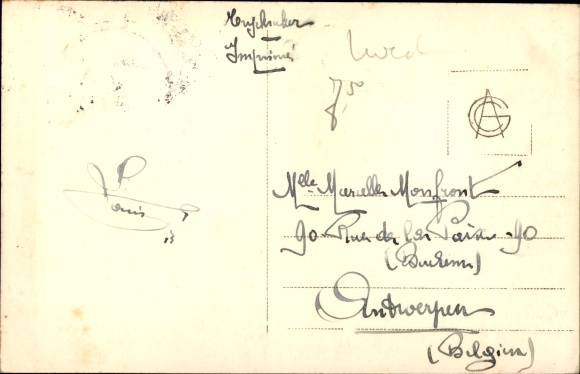 Imprimé
7,5
Louis
Mlle Marcelle Monfront
90 Rue de la Paix 90
(Berchem)
Antwerpen
(Belgien)